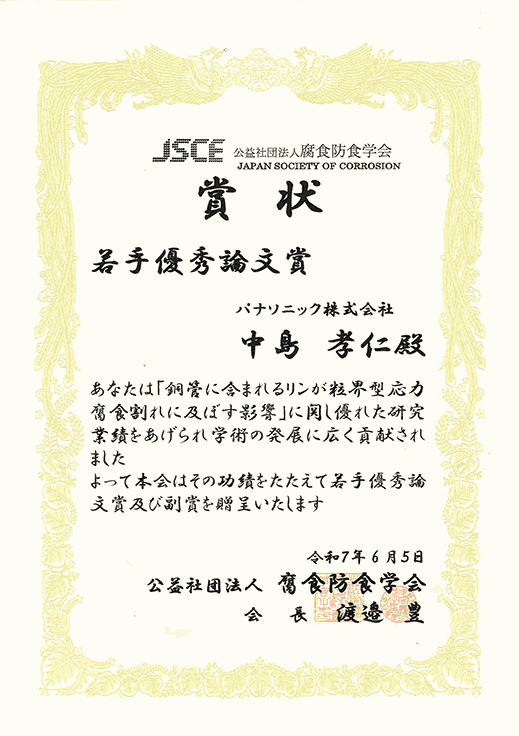 JSCE 公益社団法人腐食防食学会
JAPAN SOCIETY OF CORROSION
賞状
若手優秀論文賞
パナソニック株式会社
中島 孝仁殿
あなたは「銅管に含まれるリンが粒界型応力
腐食割れに及ぼす影響」に関し優れた研究
業績をあげられ学術の発展に広く貢献され
ました
よって本会はその功績をたたえて若手優秀論
文賞及び副賞を贈呈いたします
令和7年6月5日
公益社団法人 腐食防食学会
会長 渡邉 豊